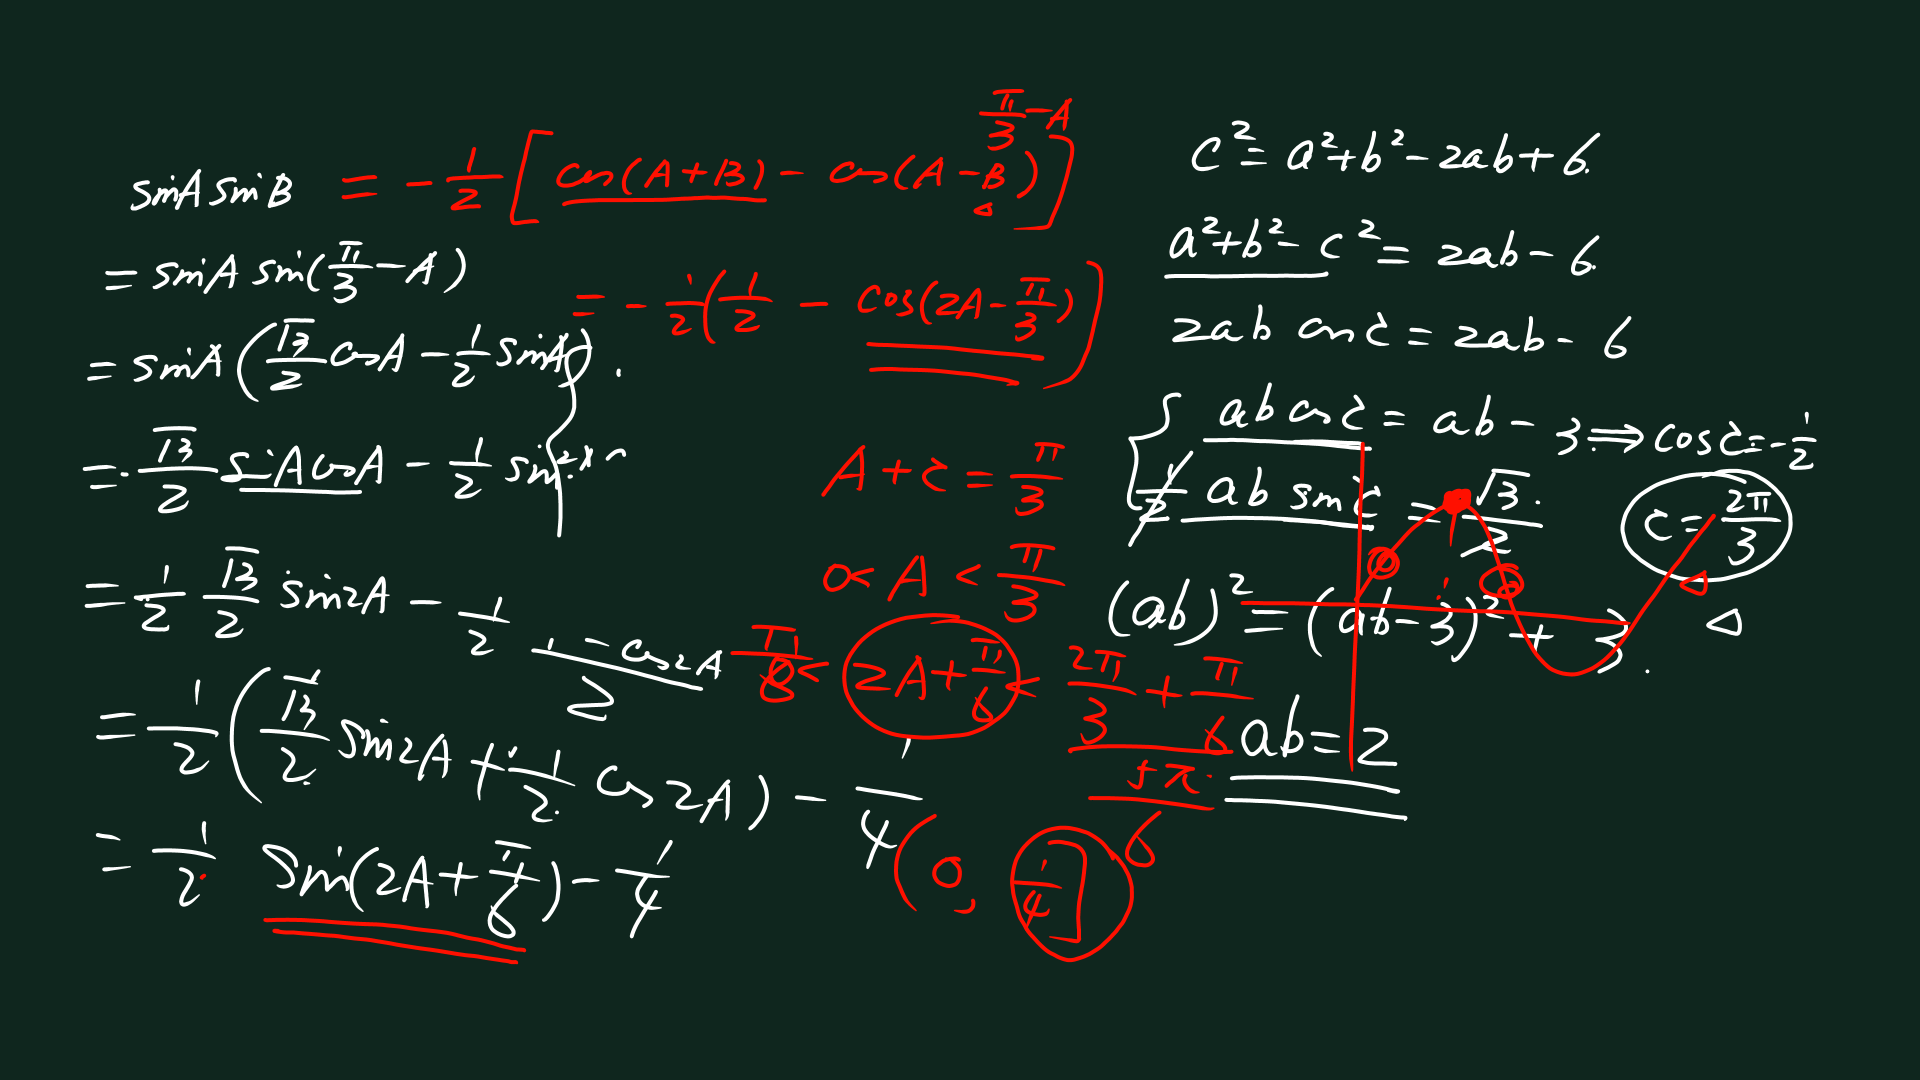 sinA sinB = -1/2 [cos(A+B) - cos(A-B)]
π/3 - A
= sinA sin(π/3 - A)
= -1/2 (1/2 - cos(2A - π/3))
= sinA (√3/2 cosA - 1/2 sinA).
= √3/2 sinAcosA - 1/2 sin²A
= 1/2 √3/2 sin2A - 1/2 (1-cos2A)/2
= 1/2 (√3/2 sin2A + 1/2 cos2A) - 1/4
= 1/2 sin(2A + π/6) - 1/4
A + C = π/3
0 < A < π/3
π/6 < 2A + π/6 < 2π/3 + π/6
5π/6
(0, 1/4]
c² = a²+b²-2ab+6.
a²+b²-c² = 2ab-6
2ab cosC = 2ab-6
{ ab cosC = ab-3 ⇒ cosC = -1/2
1/2 ab sinC = √3/2
C = 2π/3
(ab)² = (ab-3)² + 3.
ab = 2